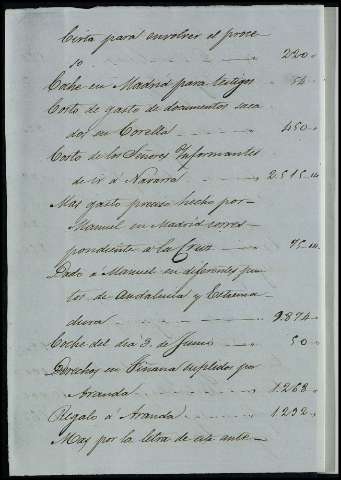 Cinta para envolver el proce-
so 220
Coche en Madrid para testigos 54
Costo de gasto de documentos saca
dos en Corella 450
Costo de los Señores Informantes
de ir á Navarra 2515
Mas gasto preciso hecho por
Manuel en Madrid corres
pondiente a la Cruz 75
Dado a Manuel en diferentes pun
tos de Andalucia y Estrema
dura 9.874
Coche del dia 9 de Junio 50
Derechos en suplidos por
Aranda 1.268
Regalo á Aranda 1232
Mas por la letra de este ante-